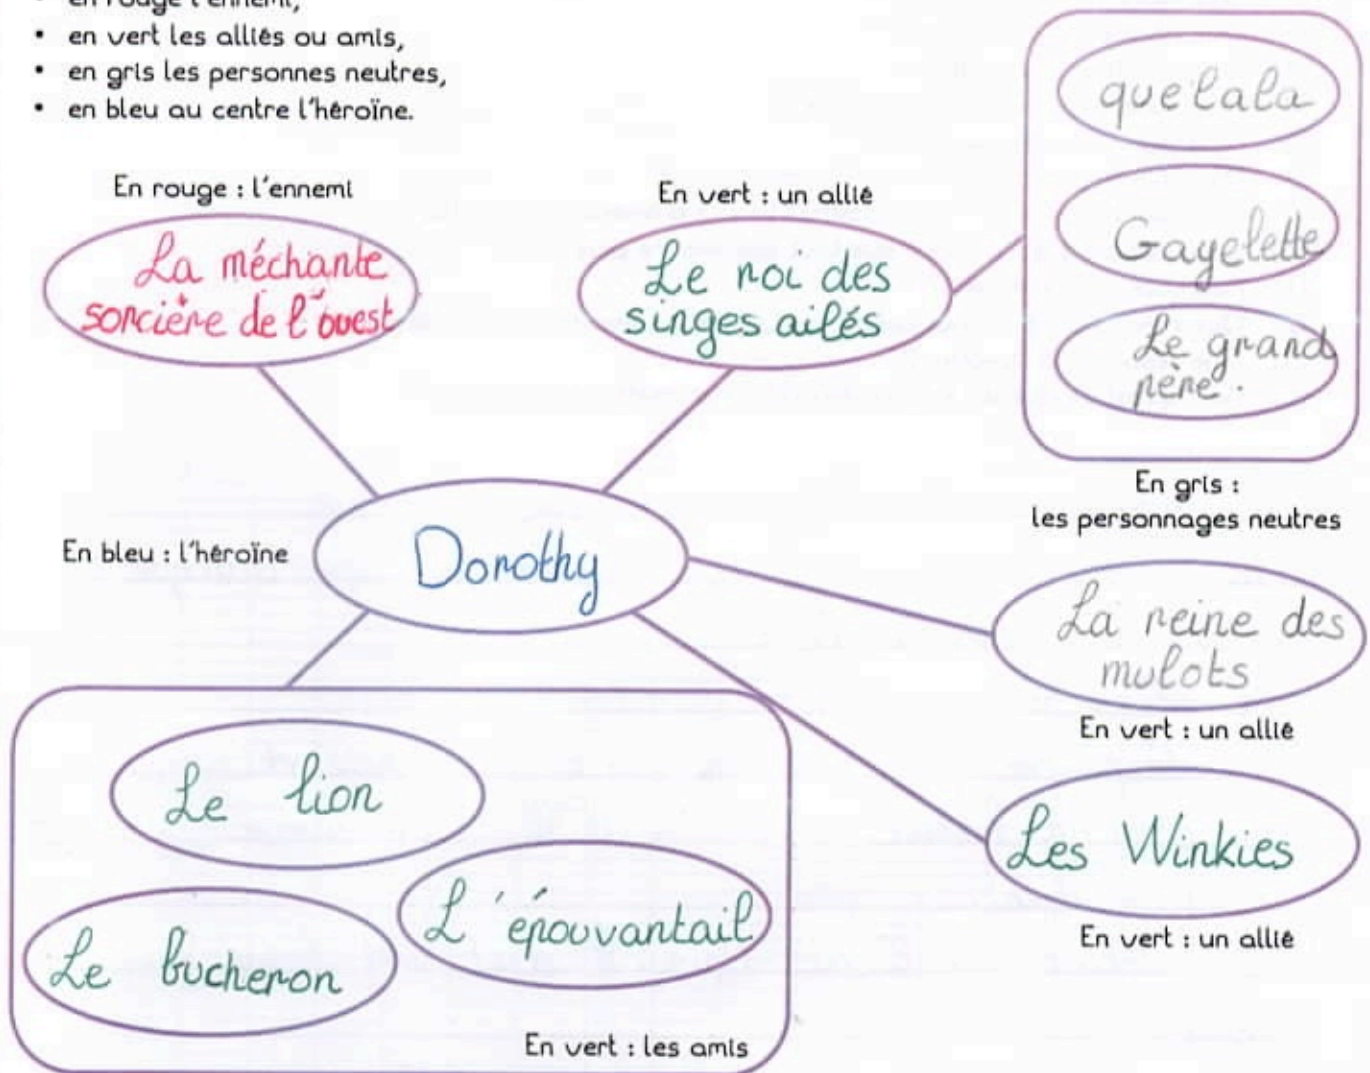 • en rouge l'ennemi,
• en vert les alliés ou amis,
• en gris les personnes neutres,
• en bleu au centre l'héroïne.
En rouge : l'ennemi
La méchante
sorcière de l'ouest
En vert : un allié
Le roi des
singes ailés
quelala
Gayelette
Le grand
père.
En gris :
les personnages neutres
En bleu : l'héroïne
Dorothy
La reine des
mulots
En vert : un allié
Les Winkies
En vert : un allié
Le lion
L'épouvantail
Le bucheron
En vert : les amis